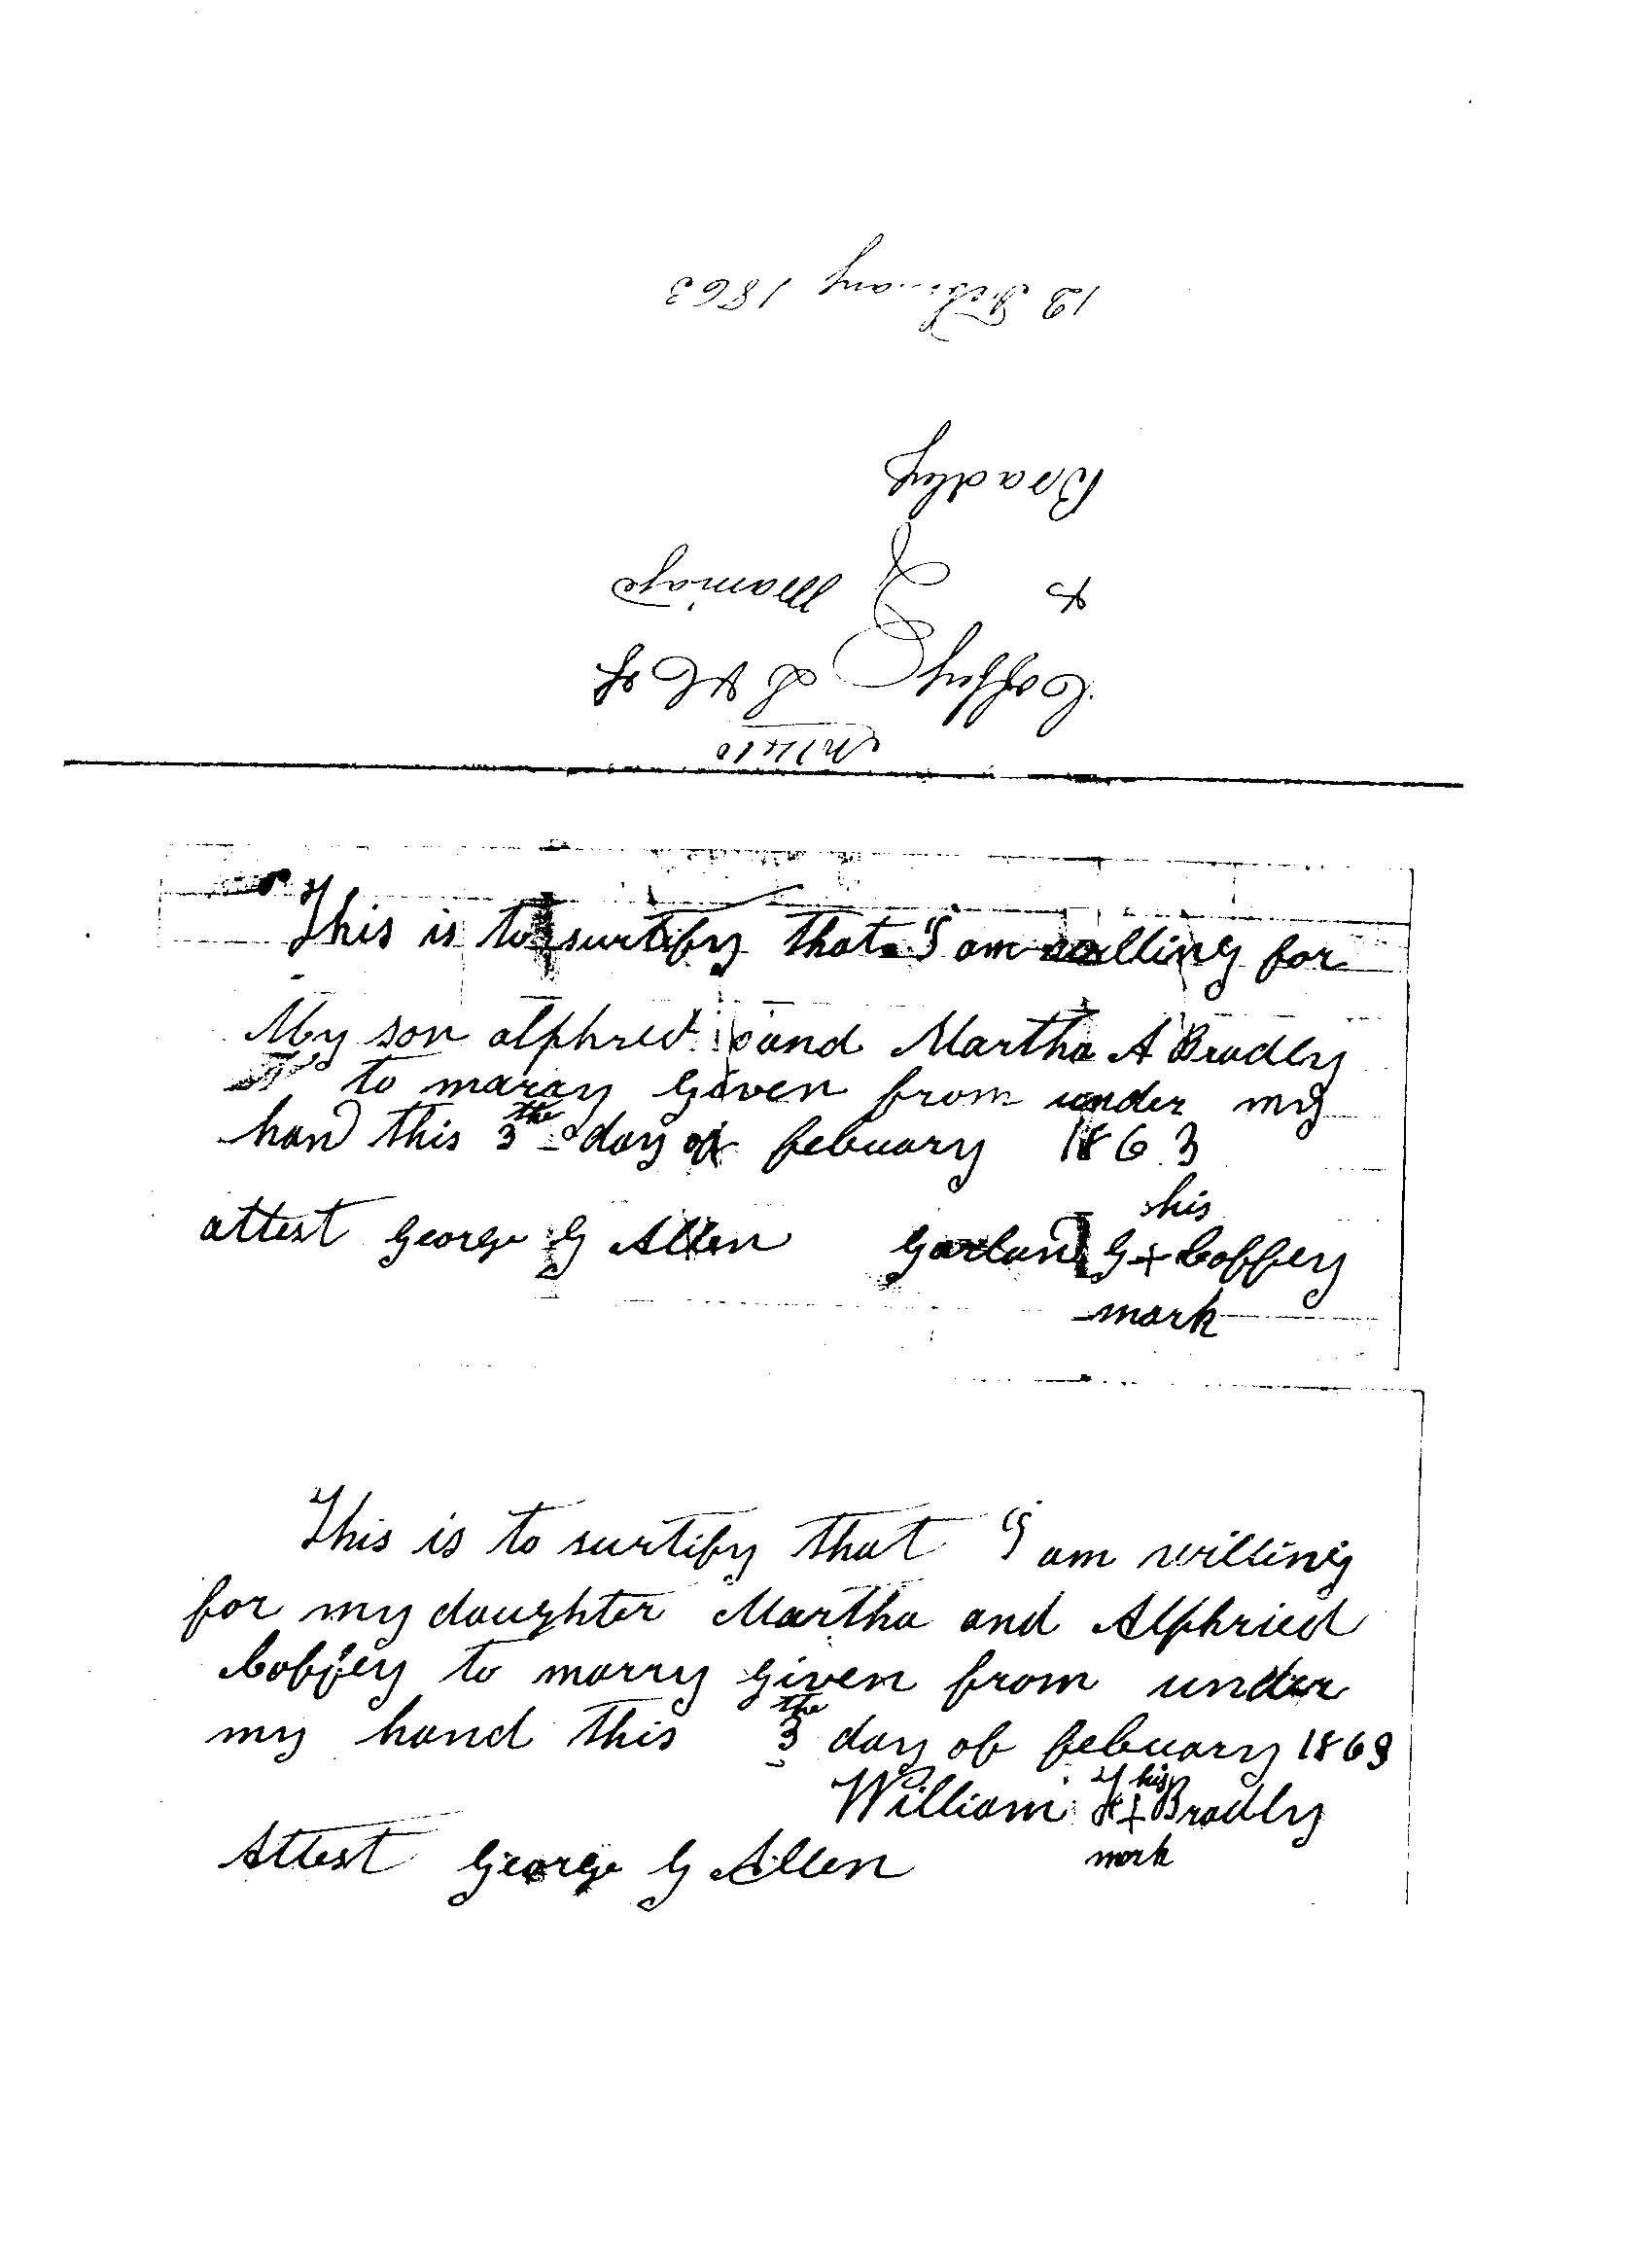 Coffey L & C of
& Marriage
Bradley
12 February 1863
This is to surtify that I am willing for
My son alphred and Martha A Bradley
to maray given from under my
han this 3the day of febuary 1863
his
attest George G Allen Garland G + Coffey
mark
This is to surtify that I am willing
for my daughter Martha and Alphried
Coffey to marry given from under
my hand this 3the day of febuary 1863
his
William + Bradly
Attest George G Allen mark